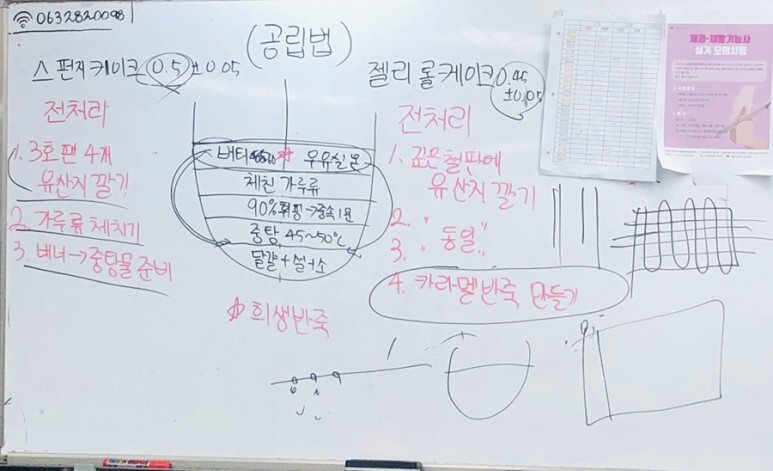 0632820098
(공립법)
스펀지케이크 0.5 ±0.05
전처리
1. 3호팬 4개
유산지 깔기
2. 가루류 체치기
3. 버너→중탕물 준비
우유실온
체친 가루류
90% 휘핑→중속 1분
중탕 45~50℃
달걀+설+소
희생반죽
젤리 롤케이크 0.45
±0.05
전처리
1. 깊은 철판에
유산지 깔기
2. "
3. " 동일 "
4. 카라멜반죽 만들기
제과·제빵기능사
실기 모의시험